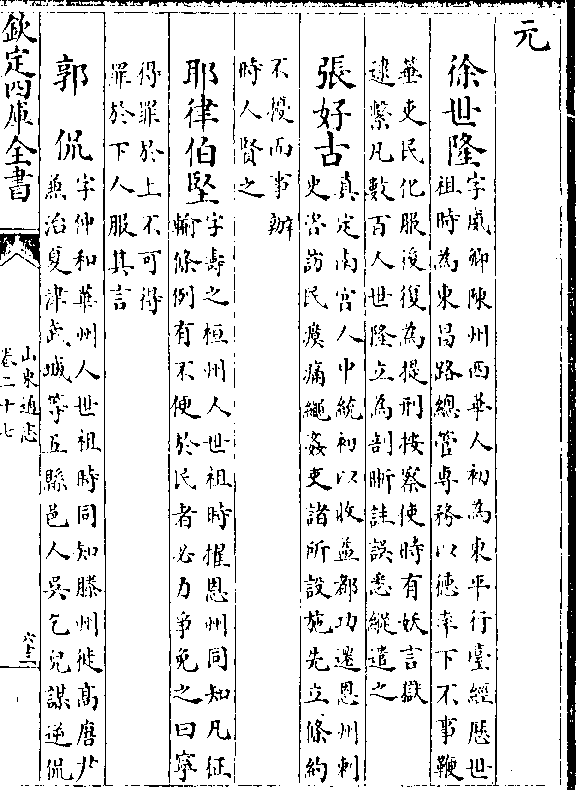 元
徐世隆字威卿陳州西華人初為東平行臺經歷世
祖時為東昌路總管專務以德率下不事鞭
箠吏民化服後復為提刑按察使時有妖言獄
逮繫凡數百人世隆立為剖晣詿誤悉縱遣之
張好古真定南宫人中統初以收益都功遷恩州刺
史咨訪民瘼痛繩姦吏諸所設施先立條約
不擾而事辦
時人賢之
耶律伯堅字壽之桓州人世祖時擢恩州同知凡征
輸條例有不便於民者必力爭免之曰寧
得罪於上不可得
罪於下人服其言
郭侃字仲和華州人世祖時同知滕州徙高唐尹
兼治夏津武城等五縣邑人吳乞兒謀逆侃
欽定四庫全書
山東通志
卷二十七